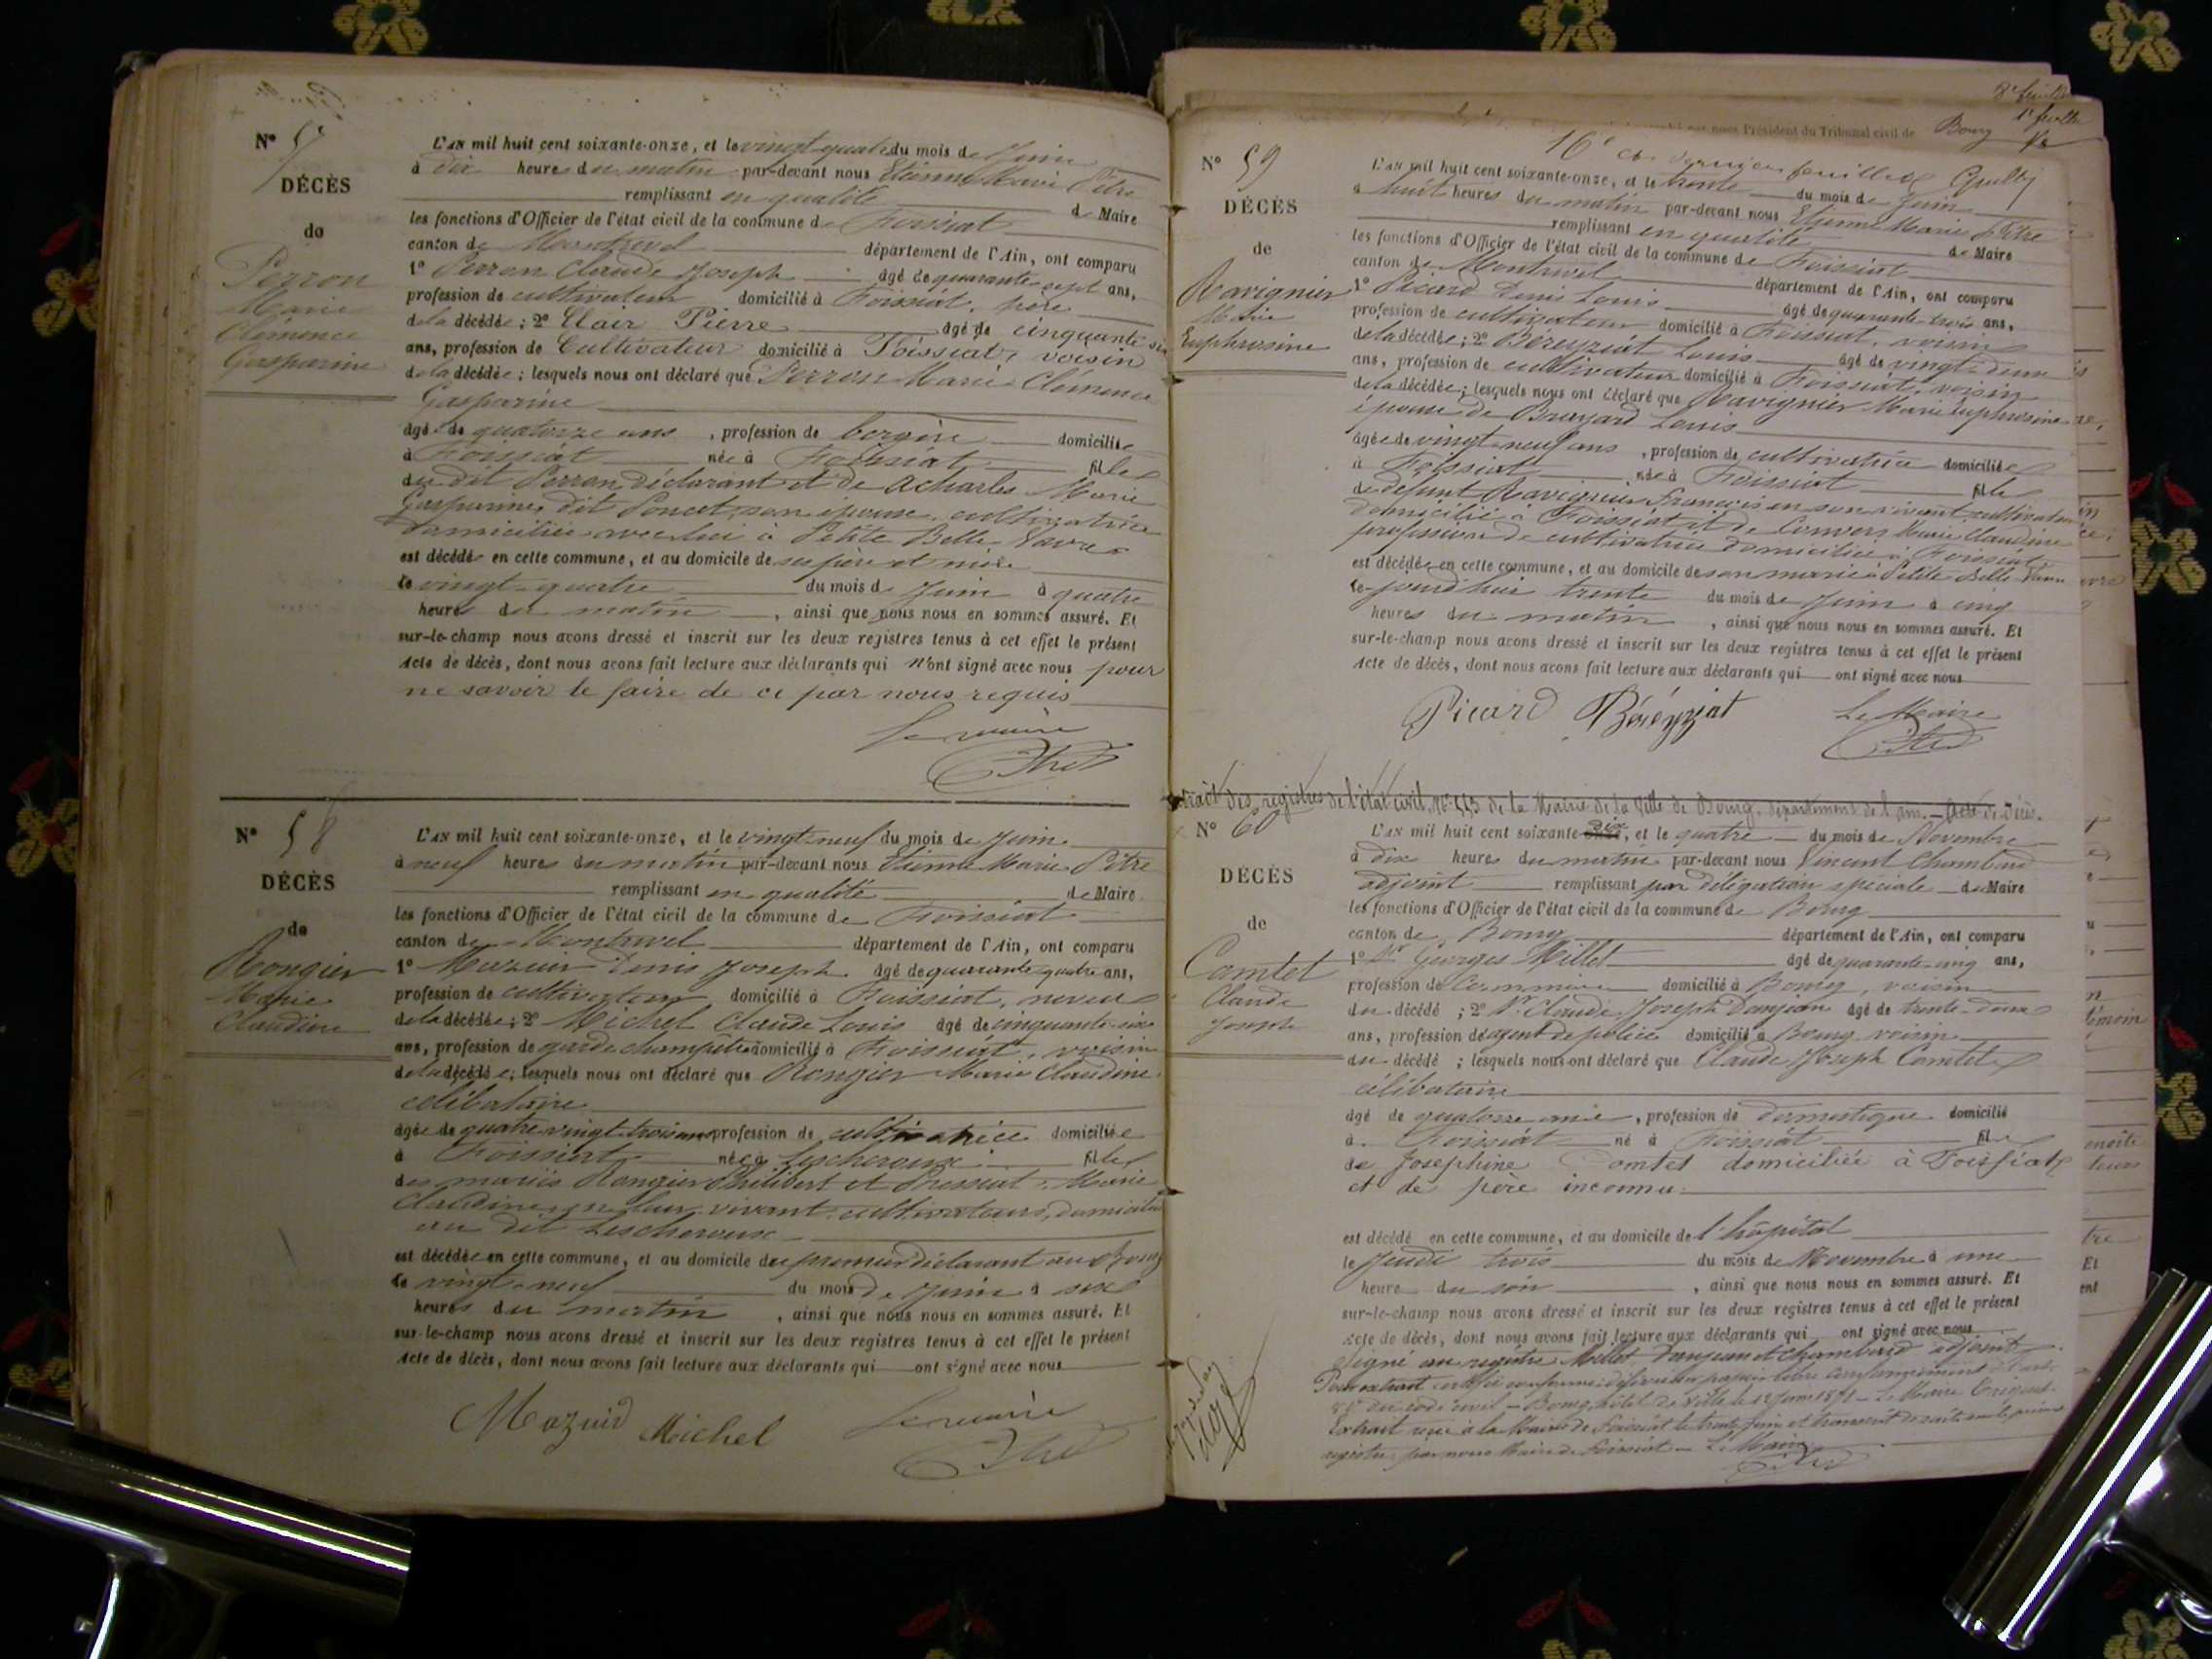 N° 57
DÉCÈS
de
Perron
Marie
Clémence
Gasparine
L'AN mil huit cent soixante-onze, et le vingt-quatre du mois de Juin
à dix heures du matin par-devant nous Etienne Marie Pitre
remplissant en qualité de Maire
les fonctions d'Officier de l'état civil de la commune de Foissiat
canton de Montrevel département de l'Ain, ont comparu
1° Perron Claude Joseph âgé de quarante-sept ans,
profession de cultivateur domicilié à Foissiat, père
de la décédée; 2° Clair Pierre âgé de cinquante six
ans, profession de Cultivateur domicilié à Foissiat, voisin
de la décédée; lesquels nous ont déclaré que Perron Marie Clémence
Gasparine
âgée de quatorze ans, profession de bergère domiciliée
à Foissiat née à Foissiat fille
du dit Perron déclarant et de Acharles Marie
Gasparine, dit Poncet, son épouse, cultivatrice
domiciliée avec lui à Petite Belle Vavre
est décédée en cette commune, et au domicile de ses père et mère
le vingt-quatre du mois de Juin à quatre
heures du matin, ainsi que nous nous en sommes assuré. Et
sur-le-champ nous avons dressé et inscrit sur les deux registres tenus à cet effet le présent
Acte de décès, dont nous avons fait lecture aux déclarants qui n'ont signé avec nous pour
ne savoir le faire de ce par nous requis
Le maire
N° 58
DÉCÈS
de
Rongier
Marie
Claudine
L'AN mil huit cent soixante-onze, et le vingt-neuf du mois de Juin
à neuf heures du matin par-devant nous Etienne Marie Pitre
remplissant en qualité de Maire
les fonctions d'Officier de l'état civil de la commune de Foissiat
canton de Montrevel département de l'Ain, ont comparu
1° Mazuir Denis Joseph âgé de quarante-quatre ans,
profession de cultivateur domicilié à Foissiat, neveu
de la décédée; 2° Michel Claude Louis âgé de cinquante-six
ans, profession de garde champêtre domicilié à Foissiat, voisin
de la décédée; lesquels nous ont déclaré que Rongier Marie Claudine
célibataire
âgée de quatre-vingt-trois ans profession de cultivatrice domiciliée
à Foissiat née à Lescheroux fille
des mariés Rongier Philibert et Pressiat Marie
Claudine, en leur vivant cultivateurs, domiciliés
au dit Lescheroux
est décédée en cette commune, et au domicile du premier déclarant au Bourg
le vingt-neuf du mois de Juin à six
heures du matin, ainsi que nous nous en sommes assuré. Et
sur-le-champ nous avons dressé et inscrit sur les deux registres tenus à cet effet le présent
Acte de décès, dont nous avons fait lecture aux déclarants qui ont signé avec nous
Mazuir Michel Le maire
8e feuille
1e feuille
par nous Président du Tribunal civil de Bourg
16e et dernière feuille
N° 59
DÉCÈS
de
Ravignier
Marie
Euphrosine
L'AN mil huit cent soixante-onze, et le trente du mois de Juin
à huit heures du matin par-devant nous Etienne Marie Pitre
remplissant en qualité de Maire
les fonctions d'Officier de l'état civil de la commune de Foissiat
canton de Montrevel département de l'Ain, ont comparu
1° Picard Denis Louis âgé de quarante-trois ans,
profession de cultivateur domicilié à Foissiat, voisin
de la décédée; 2° Béréyziat Louis âgé de vingt-deux
ans, profession de cultivateur domicilié à Foissiat, voisin
de la décédée; lesquels nous ont déclaré que Ravignier Marie Euphrosine
épouse de Louis
âgée de vingt-neuf ans, profession de cultivatrice domiciliée
à Foissiat née à Foissiat fille
de défunt Ravignier François en son vivant cultivateur
domicilié à Foissiat et de Convers Marie Claudine
profession de cultivatrice domiciliée à Foissiat
est décédée en cette commune, et au domicile de son mari à Petite Belle Vavre
le jourd'hui trente du mois de Juin à cinq
heures du matin, ainsi que nous nous en sommes assuré. Et
sur-le-champ nous avons dressé et inscrit sur les deux registres tenus à cet effet le présent
Acte de décès, dont nous avons fait lecture aux déclarants qui ont signé avec nous
Picard Béréyziat Le Maire
Extrait des registres de l'état civil, N° 543 de la Mairie de la Ville de Bourg, département de l'ain. — Acte de Décès.
N° 60
DÉCÈS
de
Comtet
Claude
Joseph
L'AN mil huit cent soixante-dix, et le quatre du mois de Novembre
à dix heures du matin par-devant nous Vincent Chambard
adjoint remplissant par délégation spéciale du Maire
les fonctions d'Officier de l'état civil de la commune de Bourg
canton de Bourg département de l'Ain, ont comparu
1° Sr Georges Millet âgé de quarante-cinq ans,
profession de domicilié à Bourg, voisin
du décédé; 2° Sr Claude Joseph Danjean âgé de trente-deux
ans, profession d'agent de police domicilié à Bourg voisin
du décédé; lesquels nous ont déclaré que Claude Joseph Comtet
célibataire
âgé de quatorze ans, profession de domestique domicilié
à Foissiat né à Foissiat fils
de Josephine Comtet domiciliée à Foissiat
et de père inconnu
est décédé en cette commune, et au domicile de l'hôpital
le Jeudi trois du mois de Novembre à une
heure du soir, ainsi que nous nous en sommes assuré. Et
sur-le-champ nous avons dressé et inscrit sur les deux registres tenus à cet effet le présent
Acte de décès, dont nous avons fait lecture aux déclarants qui ont signé avec nous
Signé au registre Millet Danjean et Chambard adjoint
Pour extrait certifié conforme délivré sur papier libre conformément à l'art.
80 du code civil — Bourg, hôtel de Ville le 12 Juin 1871 — Le Maire
Extrait reçu à la Mairie de Foissiat le trente Juin et transcrit de suite sur le présent
registre par nous Maire de Foissiat — Le Maire